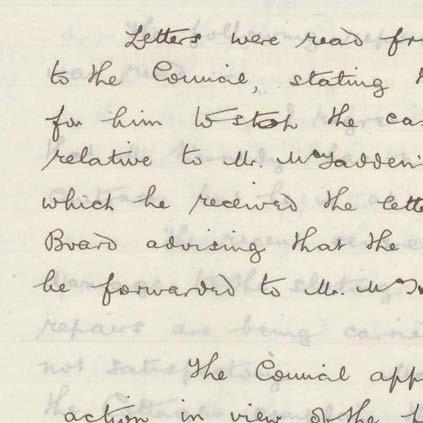 Letters were read fr
to the Council, stating
for him to stop the ca
relative to Mr. McFadden'
which he received the lette
Board advising that the
be forwarded to Mr. McF
The Council app
action in view of the